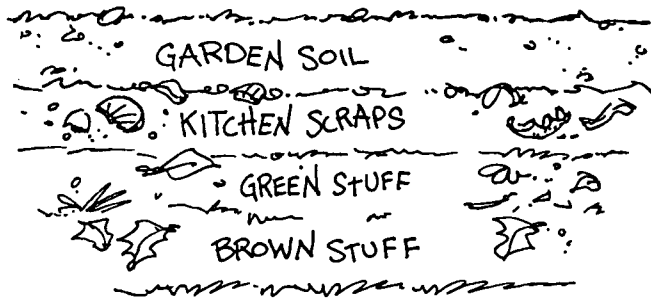 GARDEN SOIL
KITCHEN SCRAPS
GREEN STUFF
BROWN STUFF